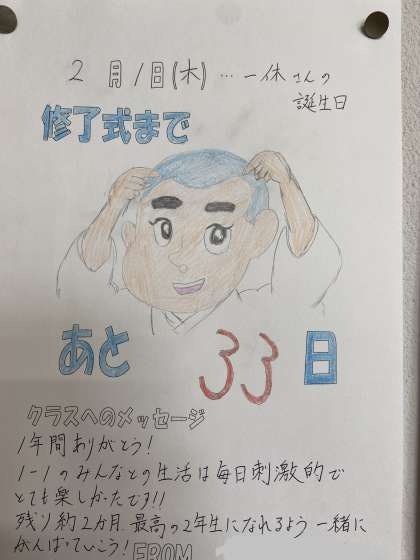 2月1日(木)…一休さんの
誕生日
修了式まで
あと 33 日
クラスへのメッセージ
1年間ありがとう!
1-1のみんなとの生活は毎日刺激的で
とても楽しかたです!!
残り約2か月 最高の2年生になれるよう一緒に
がんばっていこう!FROM